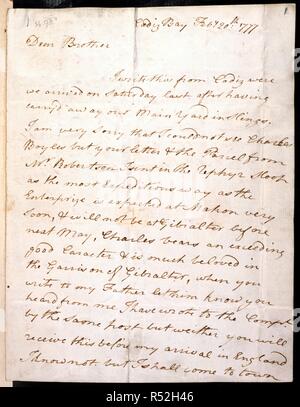 Cadiz Bay Feb 20th 1777
Dear Brother
I write this from Cadiz were
we arrived on Saturday last after having
carry'd away our Main Yard in Slings.
I am very Sorry that I coud not see Charles
Boyles but your letter & the Parcel from
Mr Robertson I sent in the Zephyr Sloop
as the most Expeditious way as the
Enterprize is expected at Mahon very
soon, & will not be at Gibralter before
next May, Charles bears an exceeding
good Caracter & is much beloved in
the Garrison of Gibralter, when you
write to my Father let him know you
heard from me I have wrote to the
by the same post but wether you will
receive this before my arrival in England
I know not but I shall come to town
alamy
R52H46